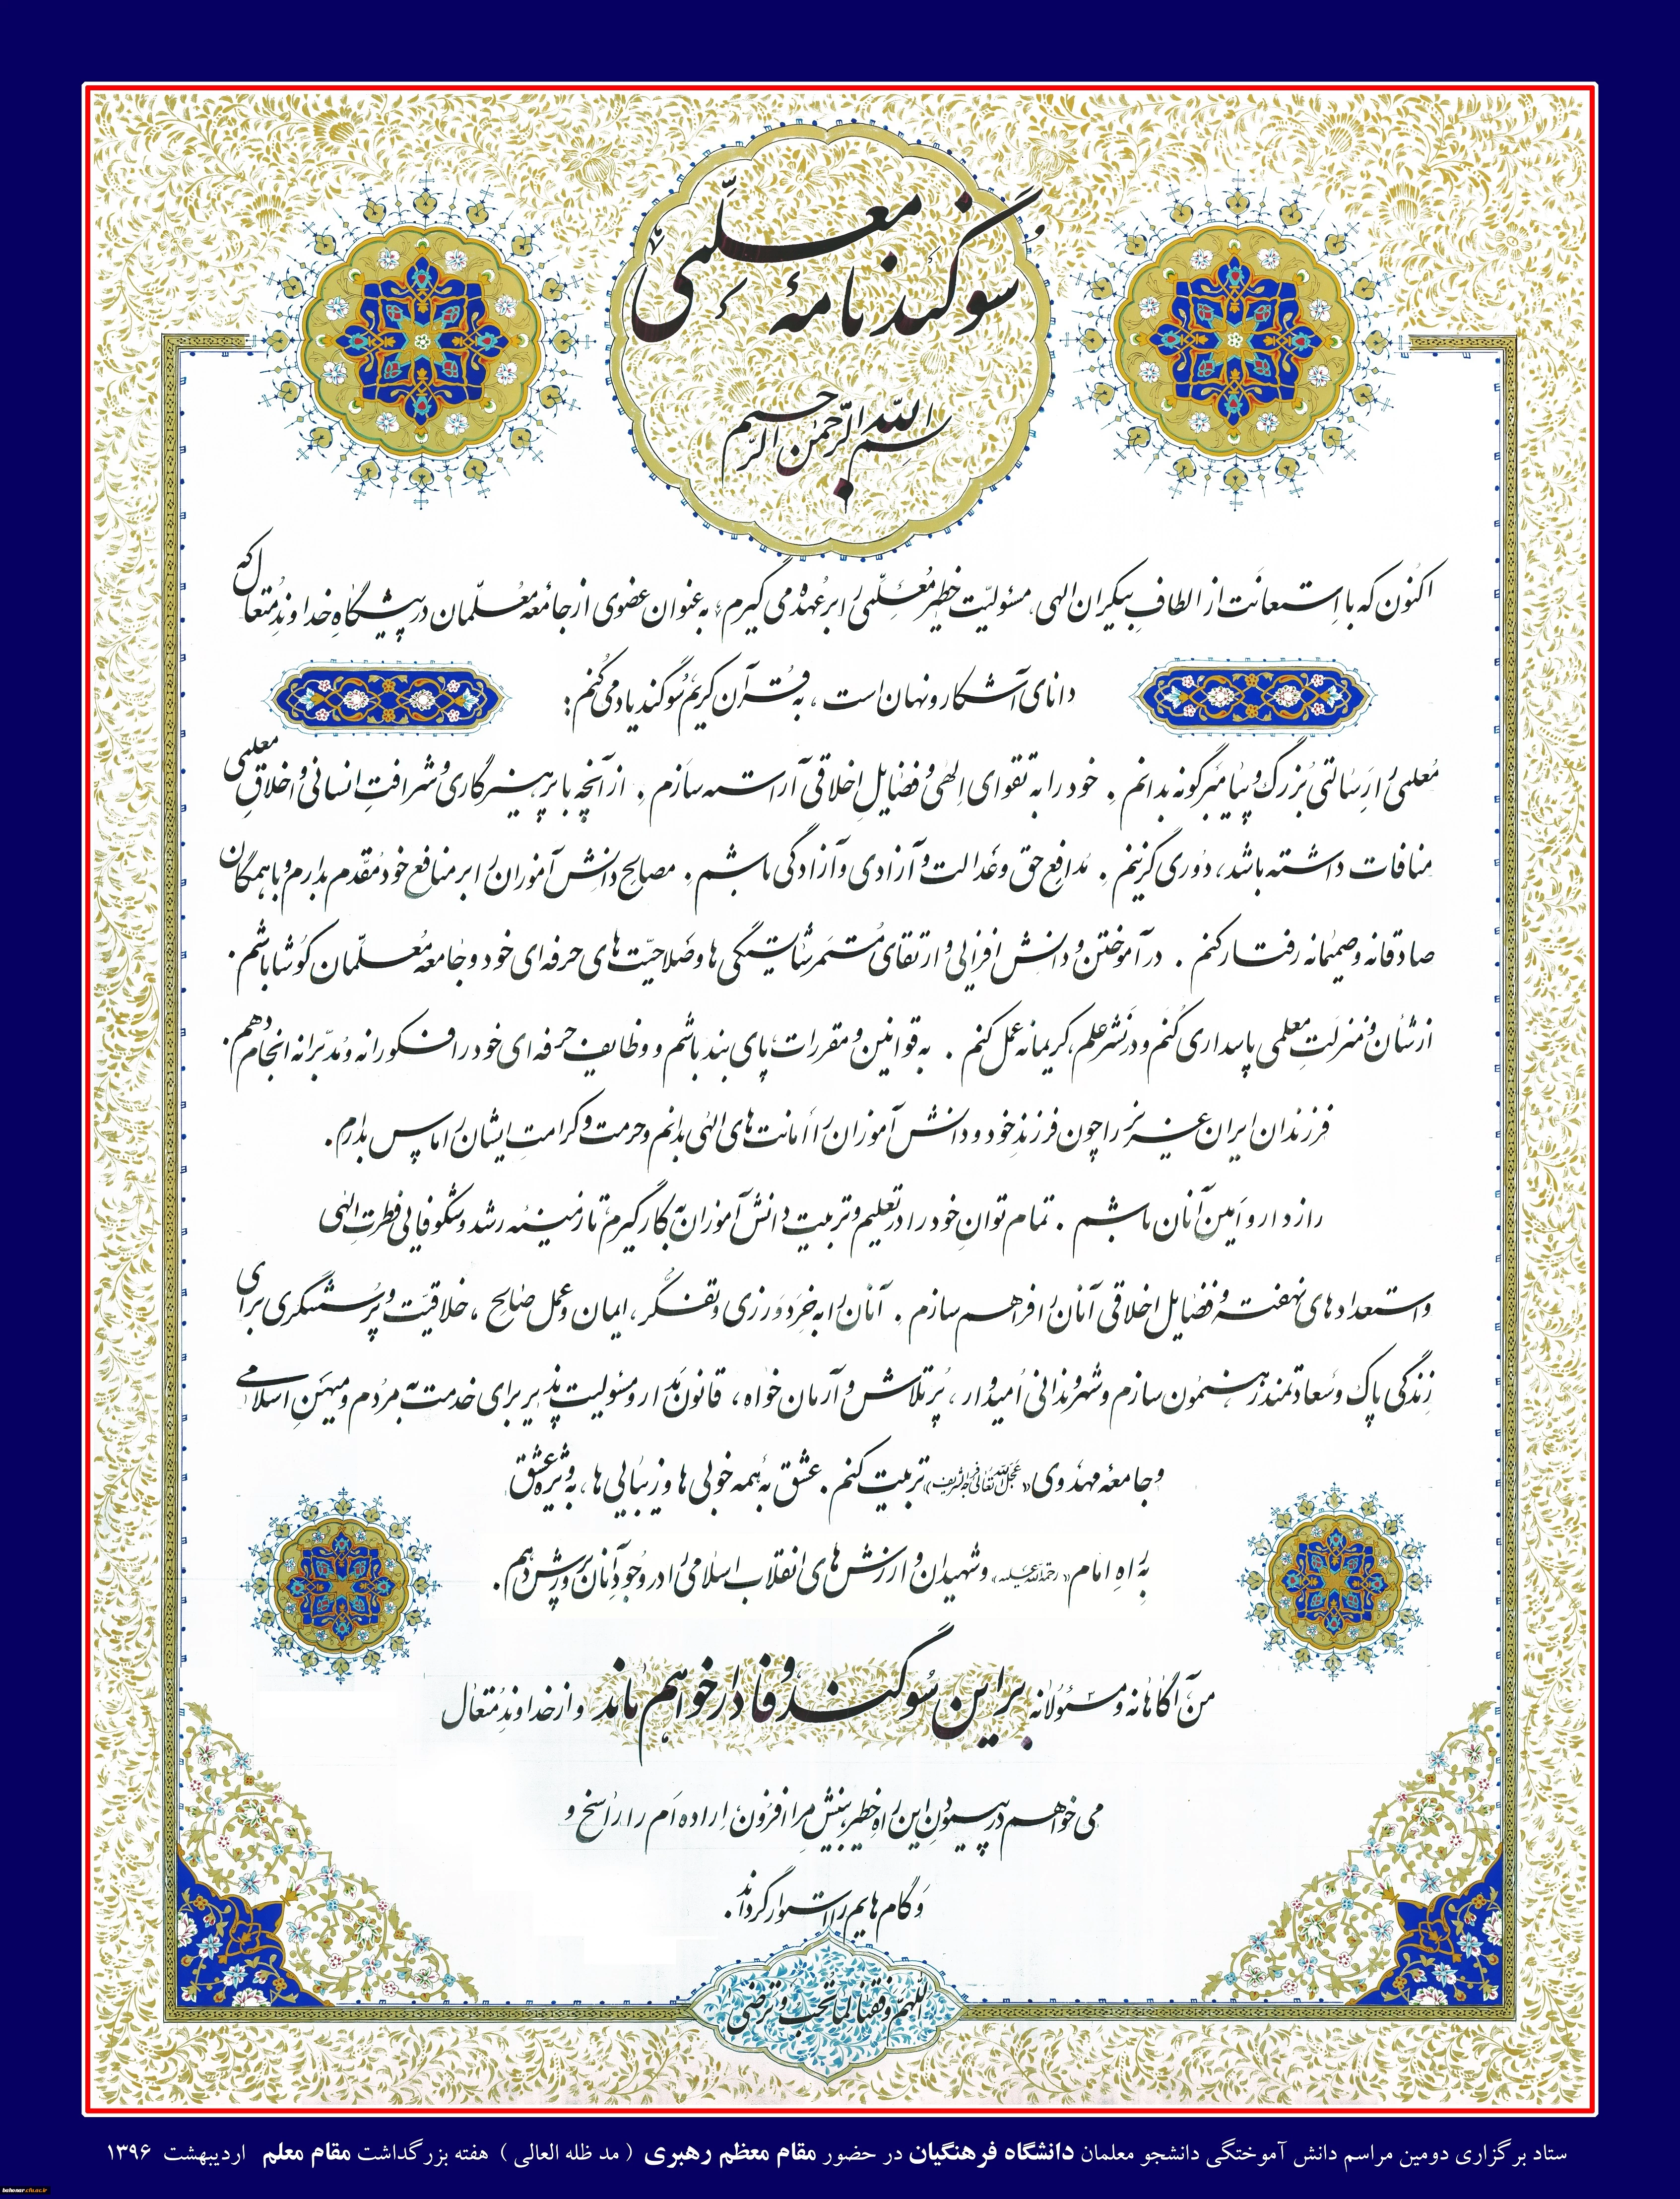 سوگندنامهٔ معلّمی
بسم الله الرحمن الرحیم
اکنون که با استعانت از الطافِ بیکران الهی، مسئولیّت خطیر مُعلّمی را بر عُهده می گیرم، به عنوان عضوی از جامعه مُعلّمان در پیشگاهِ خداوندِ مُتعال که
دانای آشکار و نهان است، به قرآن کریم سوگند یاد می کنم:
مُعلمی را رسالتی بزرگ و پیامبرگونه بدانم . خود را به تقوای الهی و فضایل اخلاقی آراسته سازم . از آنچه با پرهیزگاری و شرافتِ انسانی و اخلاقِ معلمی
منافات داشته باشد، دوری گزینم . مدافع حق و عدالت و آزادی و آزادگی باشم . مصالح دانش آموزان را بر منافع خود مُقدّم بدارم و با همگان
صادقانه و صمیمانه رفتار کنم . در آموختن و دانش افزایی و ارتقای مُستمر شایستگی ها و صلاحیّت های حرفه ای خود و جامعه مُعلّمان کوشا باشم .
از شأن و منزلتِ معلمی پاسداری کُنم و در نشر علم، کریمانه عمل کنم . به قوانین و مقررات، پای بند باشم و وظایف حرفه ای خود را فکورانه و مدبّرانه انجام دهم .
فرزندان ایران عزیز را چون فرزندِ خود و دانش آموزان را امانت های الهی بدانم و حرمت و کرامتِ ایشان را پاس بدارم .
رازدار و امین آنان باشم . تمام توانِ خود را در تعلیم و تربیت دانش آموزان به کار گیرم تا زمینه رشد و شکوفایی فطرتِ الهی
و استعدادهای نهفته و فضایل اخلاقی آنان را فراهم سازم . آنان را به خِرَدورزی و تفکّر، ایمان و عمل صالح، خلاقیّت و پُرسشگری برای
زندگی پاک و سعادتمند رهنمون سازم و شهروندانی اُمیدوار، پُرتلاش و آرمان خواه، قانون مدار و مسئولیت پذیر برای خدمت به مردم و میهنِ اسلامی
و جامعهٔ مهدوی «عجل الله تعالی فرجه الشریف» تربیت کنم . عشق به همه خوبی ها و زیبایی ها، به ویژه عشق
به راهِ امام «رحمة الله علیه» و شهیدان و ارزش های انقلاب اسلامی را در وجود آنان پرورش دهم .
من، آگاهانه و مسئولانه بر این سوگند وفادار خواهم ماند و از خداوندِ مُتعال
می خواهم در پیمودنِ این راهِ خطیر، بینش مرا افزون، اراده اَم را راسخ و
و گام هایم را استوار گرداند .
اللّهمّ وفقنا لما تحب و ترضی
ستاد برگزاری دومین مراسم دانش آموختگی دانشجو معلمان دانشگاه فرهنگیان در حضور مقام معظم رهبری ( مد ظله العالی ) هفته بزرگداشت مقام معلم اردیبهشت ۱۳۹۶
bahonar.cfu.ac.ir